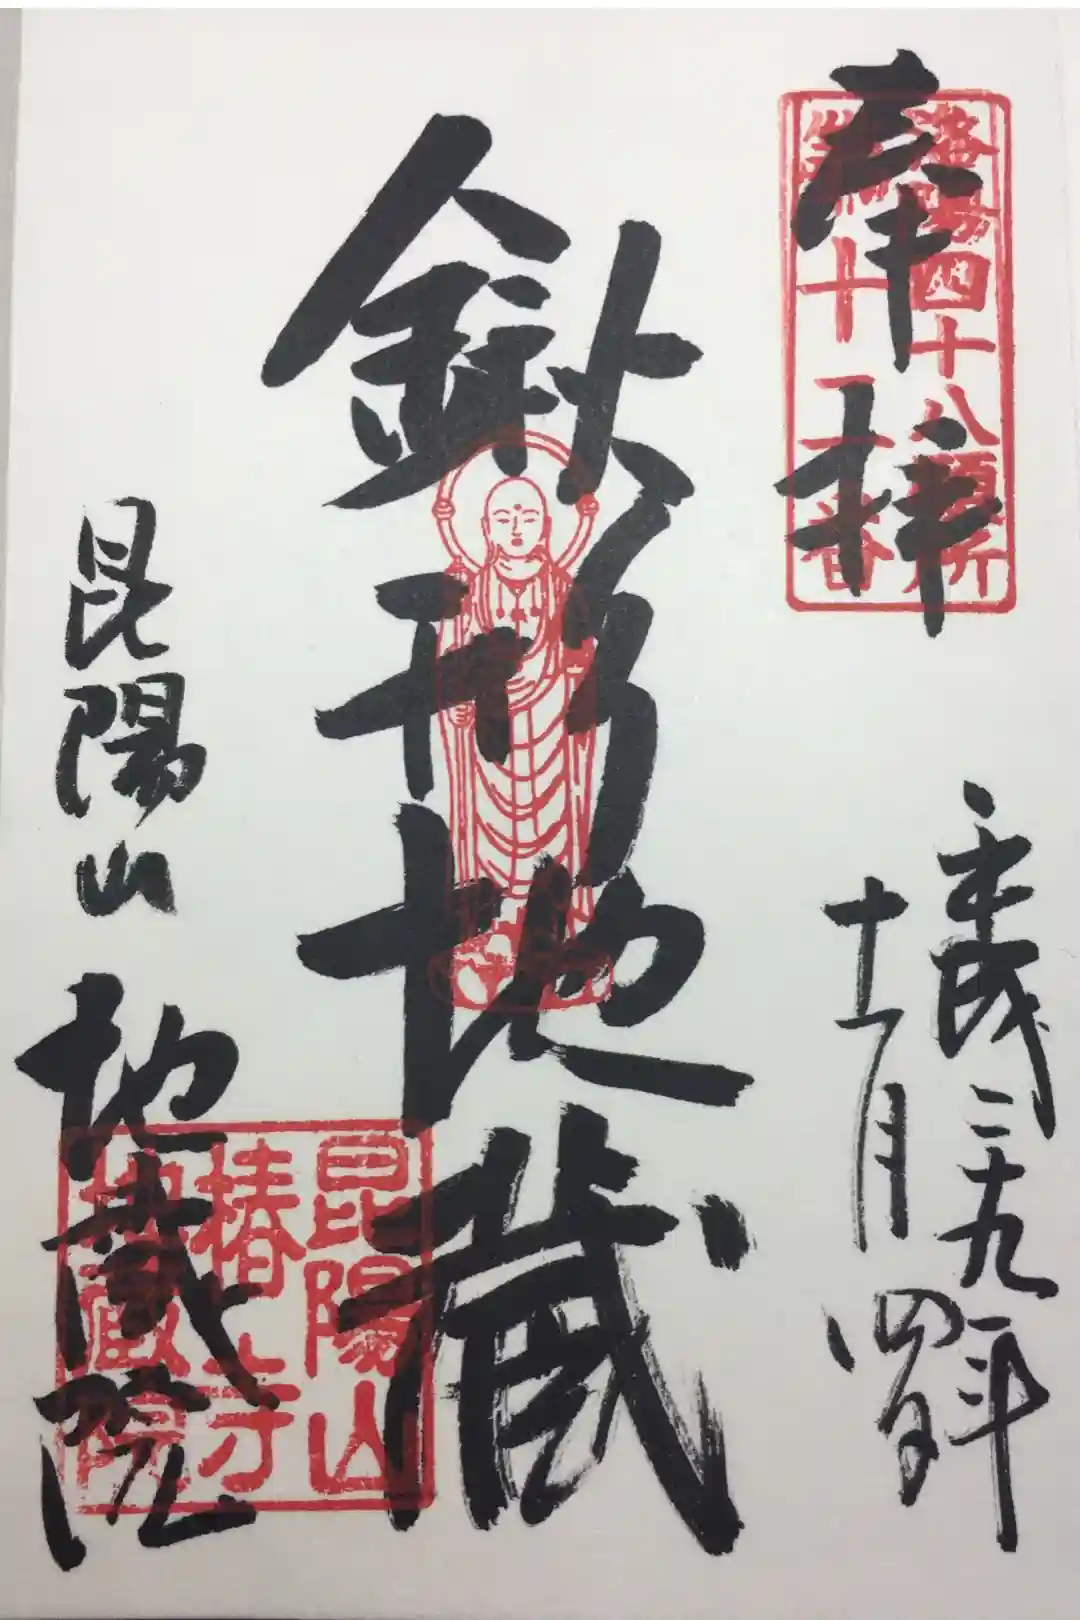 奉拝
洛陽四十八願所
第十二番
平成二十九年
十一月四日
鍬形地蔵
昆陽山 地蔵院
昆陽山
椿寺
地蔵院